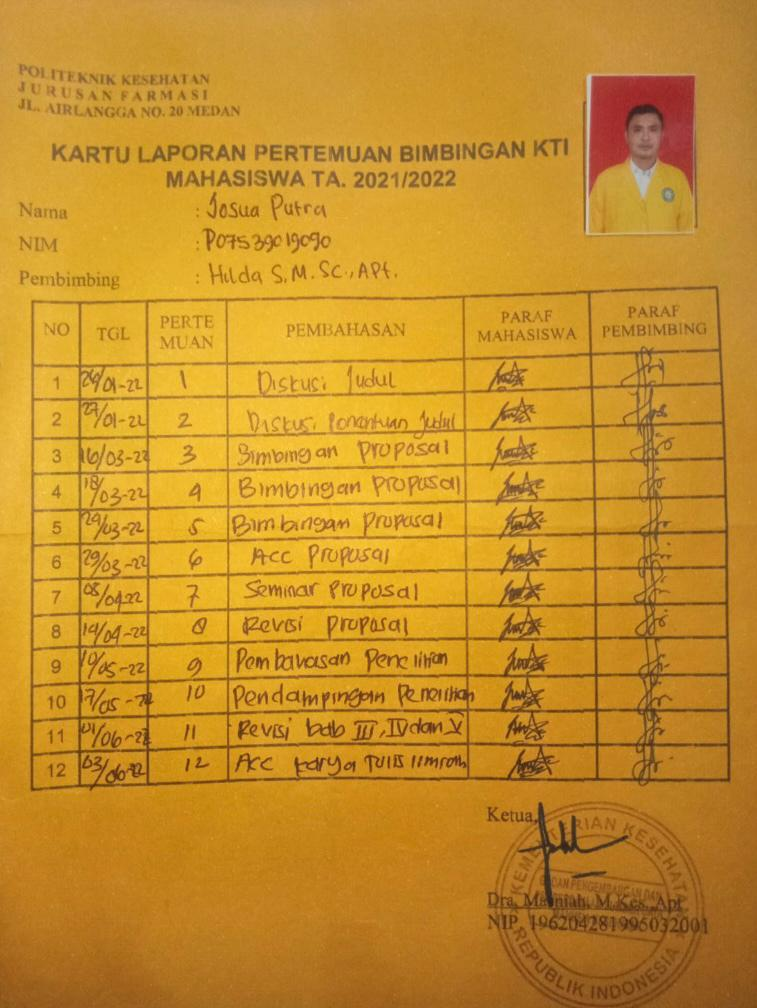 POLITEKNIK KESEHATAN
JURUSAN FARMASI
JL. AIRLANGGA NO. 20 MEDAN
KARTU LAPORAN PERTEMUAN BIMBINGAN KTI
MAHASISWA TA. 2021/2022
Nama : Josua Putra
NIM : P07539019090
Pembimbing : Hilda S, M.Sc., Apt.
NO TGL PERTE MUAN PEMBAHASAN PARAF MAHASISWA PARAF PEMBIMBING
1 /01-22 1 Diskusi Judul
2 27/01-22 2 Diskusi Penentuan Judul
3 16/03-22 3 Bimbingan Proposal
4 18/03-22 4 Bimbingan Proposal
5 /03-22 5 Bimbingan Proposal
6 29/03-22 6 Acc Proposal
7 08/04-22 7 Seminar Proposal
8 14/04-22 8 Revisi Proposal
9 10/05-22 9 Penelitian
10 17/05-22 10 Pendampingan Penelitian
11 01/06-22 11 Revisi bab III, IV dan V
12 03/06-22 12 Acc Karya Tulis
Ketua,
Dra. Masniah, M.Kes., Apt
NIP. 196204281995032001
KEMENTERIAN KESEHATAN
BADAN PENGEMBANGAN DAN
REPUBLIK INDONESIA